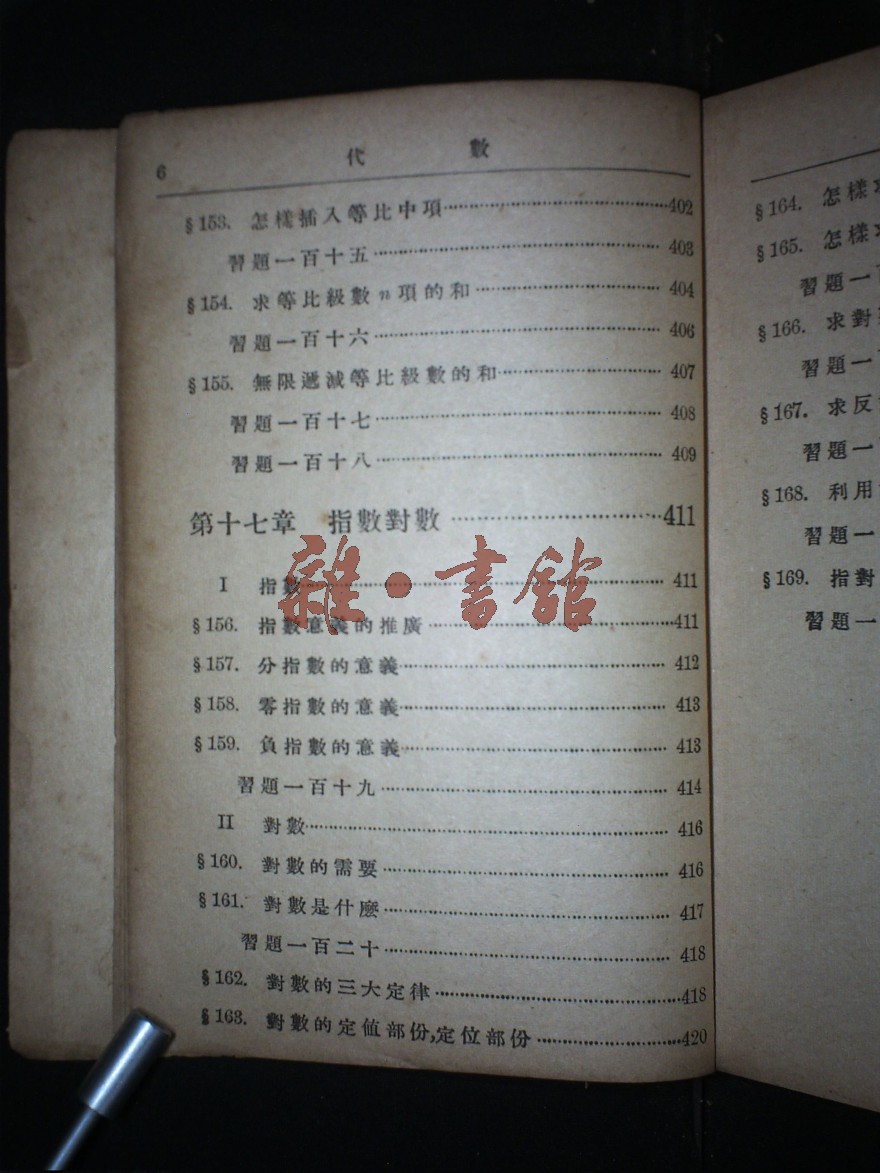 6 代數
§153. 怎樣插入等比中項……402
習題一百十五……403
§154. 求等比級數n項的和……404
習題一百十六……406
§155. 無限遞減等比級數的和……407
習題一百十七……408
習題一百十八……409
第十七章 指數對數……411
I 指數……411
§156. 指數意義的推廣……411
§157. 分指數的意義……412
§158. 零指數的意義……413
§159. 負指數的意義……413
習題一百十九……414
II 對數……416
§160. 對數的需要……416
§161. 對數是什麼……417
習題一百二十……418
§162. 對數的三大定律……418
§163. 對數的定值部份,定位部份……420
雜·書館
§164. 怎樣
§165. 怎樣
習題一
§166. 求對
習題一
§167. 求反
習題一
§168. 利用
習題一
§169. 指對
習題一